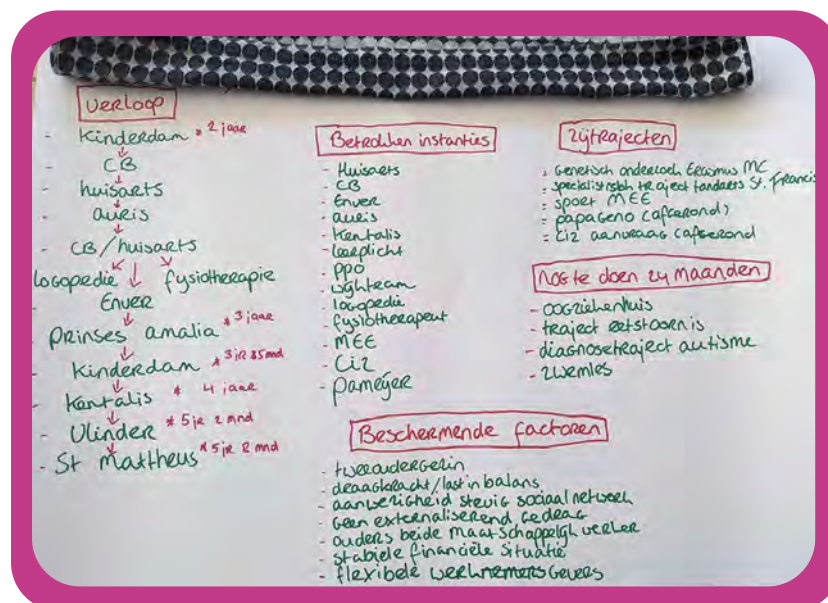 Verloop
- Kinderdam * 2 jaar
- CB
- huisarts
- auris
- CB/huisarts
logopedie fysiotherapie
Enver
- Prinses amalia * 3 jaar
- Kinderdam * 3 jr 85mnd
- Kentalis * 4 jaar
- Vlinder * 5 jr 2 mnd
- St Mattheus * 5 jr 2 mnd
Betrokken instanties
- Huisarts
- CB
- Enver
- auris
- Kentalis
- leerplicht
- PPO
- wijkteam
- logopedie
- fysiotherapeut
- MEE
- Ciz
- pameijer
Zijtrajecten
- Genetisch onderzoek Erasmus MC
- specialistisch traject tandarts St. Francis
- sport MEE
- papageno (afgerond)
- Ciz aanvraag (afgerond
Nog te doen 24 maanden
- oogziekenhuis
- traject eetstoornis
- diagnosetraject autisme
- zwemles
Beschermende factoren
- tweeoudergezin
- draagkracht/last in balans
- aanwezigheid stevig sociaal netwerk
- geen externaliserend gedrag
- ouders beide maatschappelijk verker
- stabiele financiële situatie
- flexibele werknemersgevers